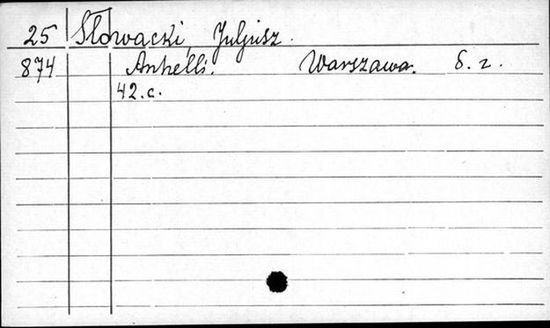 25 Słowacki, Juljusz.
874 Anhelli. Warszawa. б. г.
42. с.